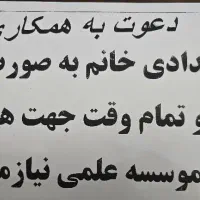 دعوت به همکاری
دادی خانم به صور
و تمام وقت جهت ه
موسسه علمی نیازم